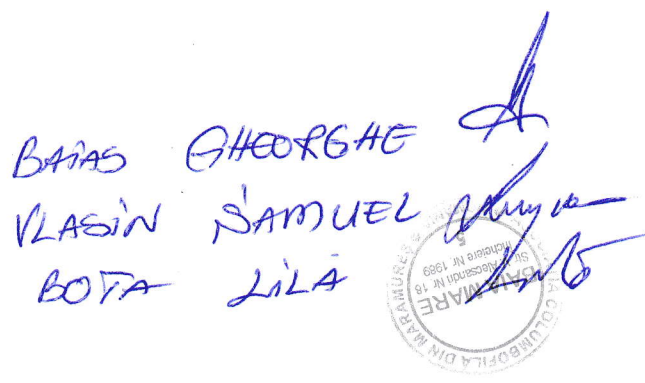 BAIAS GHEORGHE
VLASIN SAMUEL
BOTA LILA
COLUMBOFILA DIN MARAMUREȘ
BAIA MARE
Alecsandri Nr 18
Incheiere Nr 1989
5